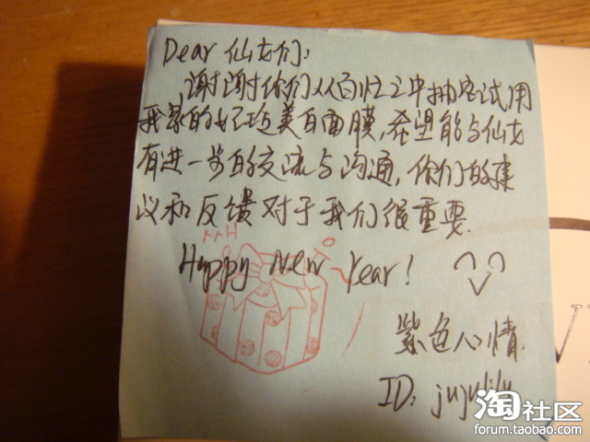 Dear 仙女们:
谢谢你们从百忙之中抽空试用
我家的妃琦美白面膜,希望能与仙女
有进一步的交流与沟通,你们的建
议和反馈对于我们很重要.
Happy New Year!
紫色心情.
ID: jujulily
淘社区
forum.taobao.com